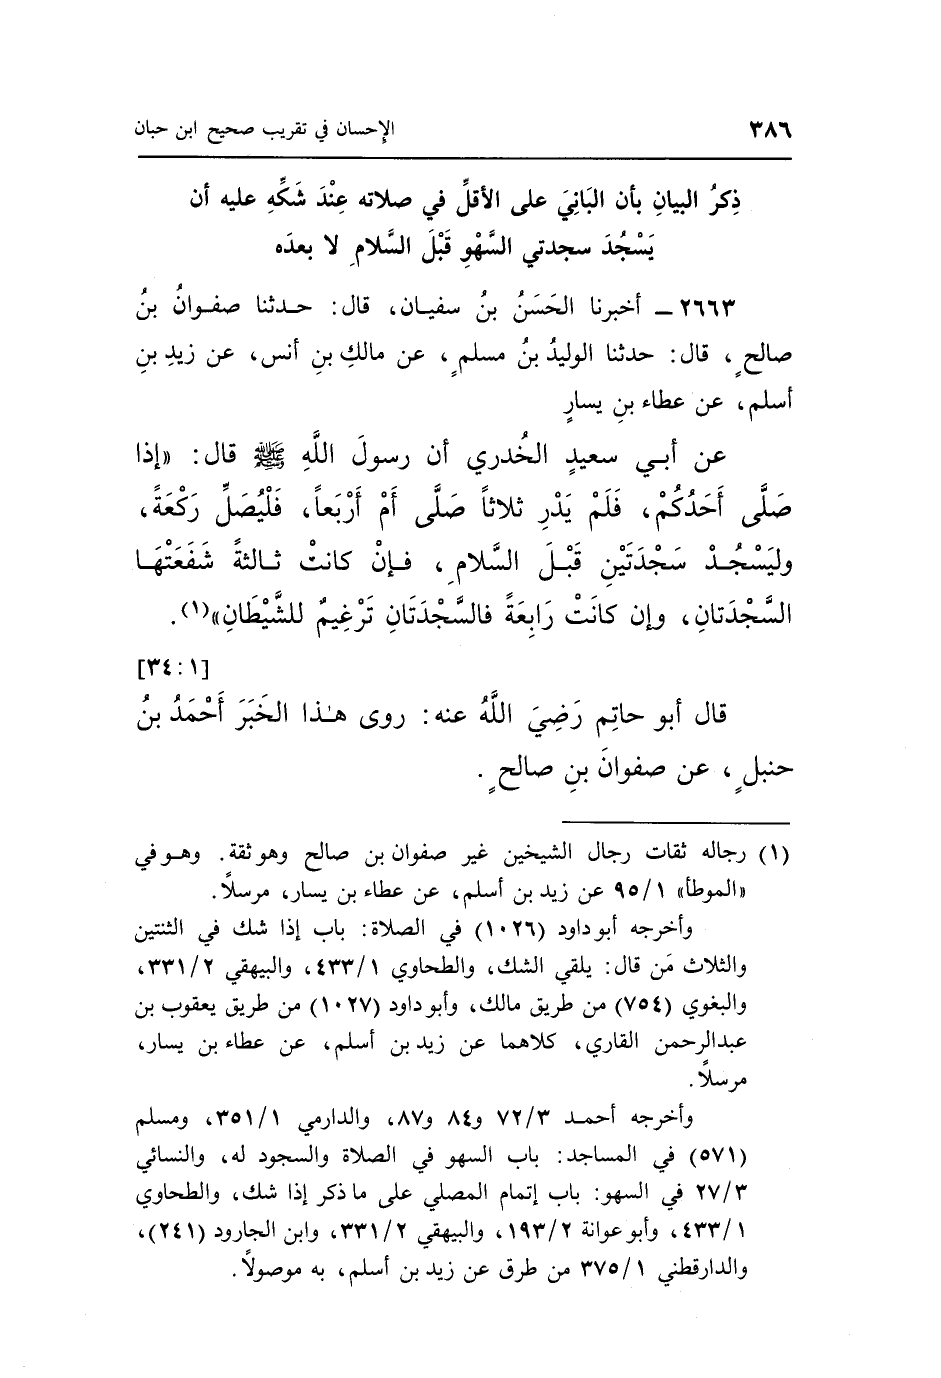 ٣٨٦ الإحسان في تقريب صحيح ابن حبان
ذِكرُ البيانِ بأن البَانِيَ على الأقلِّ في صلاته عِنْدَ شَكِّهِ عليه أن
يَسْجُدَ سجدتي السَّهْوِ قَبْلَ السَّلامِ لا بعدَه
٢٦٦٣ ــ أخبرنا الحَسَنُ بنُ سفيان، قال: حدثنا صفوانُ بنُ
صالحٍ، قال: حدثنا الوليدُ بنُ مسلمٍ، عن مالكِ بنِ أنس، عن زيدِ بنِ
أسلم، عن عطاء بنِ يسارٍ
عن أبي سعيدٍ الخُدري أن رسولَ اللَّهِ ﷺ قال: «إذا
صَلَّى أَحَدُكُمْ، فَلَمْ يَدْرِ ثلاثاً صَلَّى أَمْ أَرْبَعاً، فَلْيُصَلِّ رَكْعَةً،
وليَسْجُدْ سَجْدَتَيْنِ قَبْلَ السَّلامِ، فإنْ كانتْ ثالثةً شَفَعَتْهَا
السَّجْدَتانِ، وإن كانَتْ رَابِعَةً فالسَّجْدَتَانِ تَرْغِيمٌ للشَّيْطَانِ»(١).
[١ : ٣٤]
قال أبو حاتِم رَضِيَ اللَّهُ عنه: روى هٰذا الخَبَرَ أَحْمَدُ بنُ
حنبلٍ، عن صفوانَ بنِ صالحٍ.
(١) رجاله ثقات رجال الشيخين غير صفوان بن صالح وهو ثقة. وهو في
«الموطأ» ٩٥/١ عن زيد بن أسلم، عن عطاء بن يسار، مرسلاً.
وأخرجه أبو داود (١٠٢٦) في الصلاة: باب إذا شك في الثنتين
والثلاث مَن قال: يلقي الشك، والطحاوي ٤٣٣/١، والبيهقي ٣٣١/٢،
والبغوي (٧٥٤) من طريق مالك، وأبو داود (١٠٢٧) من طريق يعقوب بن
عبدالرحمن القاري، كلاهما عن زيد بن أسلم، عن عطاء بن يسار،
مرسلاً.
وأخرجه أحمد ٧٢/٣ و٨٤ و٨٧، والدارمي ٣٥١/١، ومسلم
(٥٧١) في المساجد: باب السهو في الصلاة والسجود له، والنسائي
٢٧/٣ في السهو: باب إتمام المصلي على ما ذكر إذا شك، والطحاوي
٤٣٣/١، وأبو عوانة ١٩٣/٢، والبيهقي ٣٣١/٢، وابن الجارود (٢٤١)،
والدارقطني ٣٧٥/١ من طرق عن زيد بن أسلم، به موصولاً.